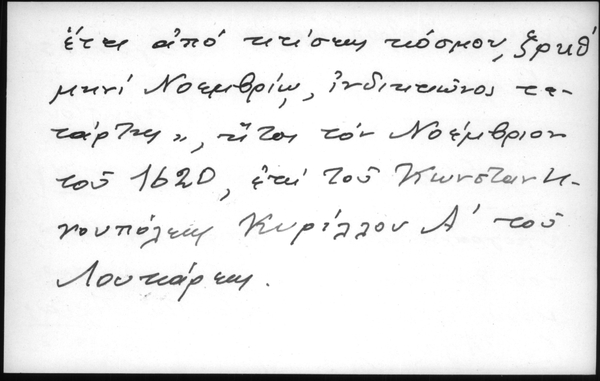 ἔτει ἀπό κτίσεως κόσμου, ζρκθ´
μηνί Νοεμβρίῳ, ἰνδικτιῶνος τε-
τάρτης», ἤτοι τόν Νοέμβριον
τοῦ 1620, ἐπί τοῦ Κωνσταντι-
νουπόλεως Κυρίλλου Α´ τοῦ
Λουκάρεως.